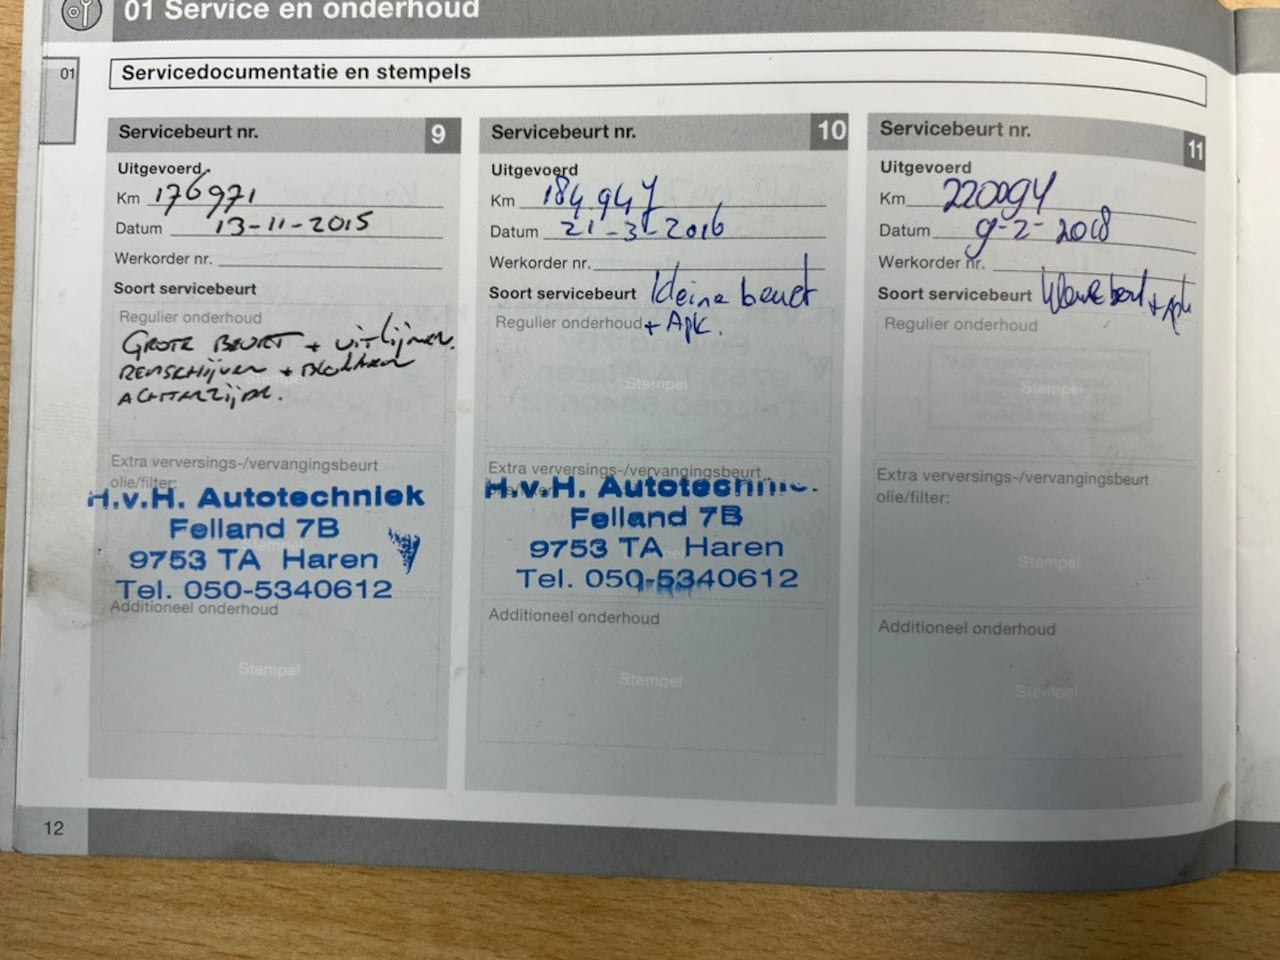 01 Service en onderhoud
01
Servicedocumentatie en stempels
Servicebeurt nr. 9
Uitgevoerd
Km 176971
Datum 13-11-2015
Werkorder nr.
Soort servicebeurt
Regulier onderhoud
GROTE BEURT + UITLIJNEN.
REMSCHIJVEN + BLOKKEN
ACHTERZIJDE.
Stempel
Extra verversings-/vervangingsbeurt
olie/filter:
H.v.H. Autotechniek
Felland 7B
9753 TA Haren
Tel. 050-5340612
Stempel
Additioneel onderhoud
Stempel
Servicebeurt nr. 10
Uitgevoerd
Km 184.947
Datum 21-3-2016
Werkorder nr.
Soort servicebeurt kleine beurt
Regulier onderhoud + Apk.
Stempel
Extra verversings-/vervangingsbeurt
olie/filter:
H.v.H. Autotechniek.
Felland 7B
9753 TA Haren
Tel. 050-5340612
Additioneel onderhoud
Stempel
Servicebeurt nr. 11
Uitgevoerd
Km
Datum 9-2-2018
Werkorder nr.
Soort servicebeurt beurt + Apk
Regulier onderhoud
Stempel
Extra verversings-/vervangingsbeurt
olie/filter:
Stempel
Additioneel onderhoud
Stempel
12